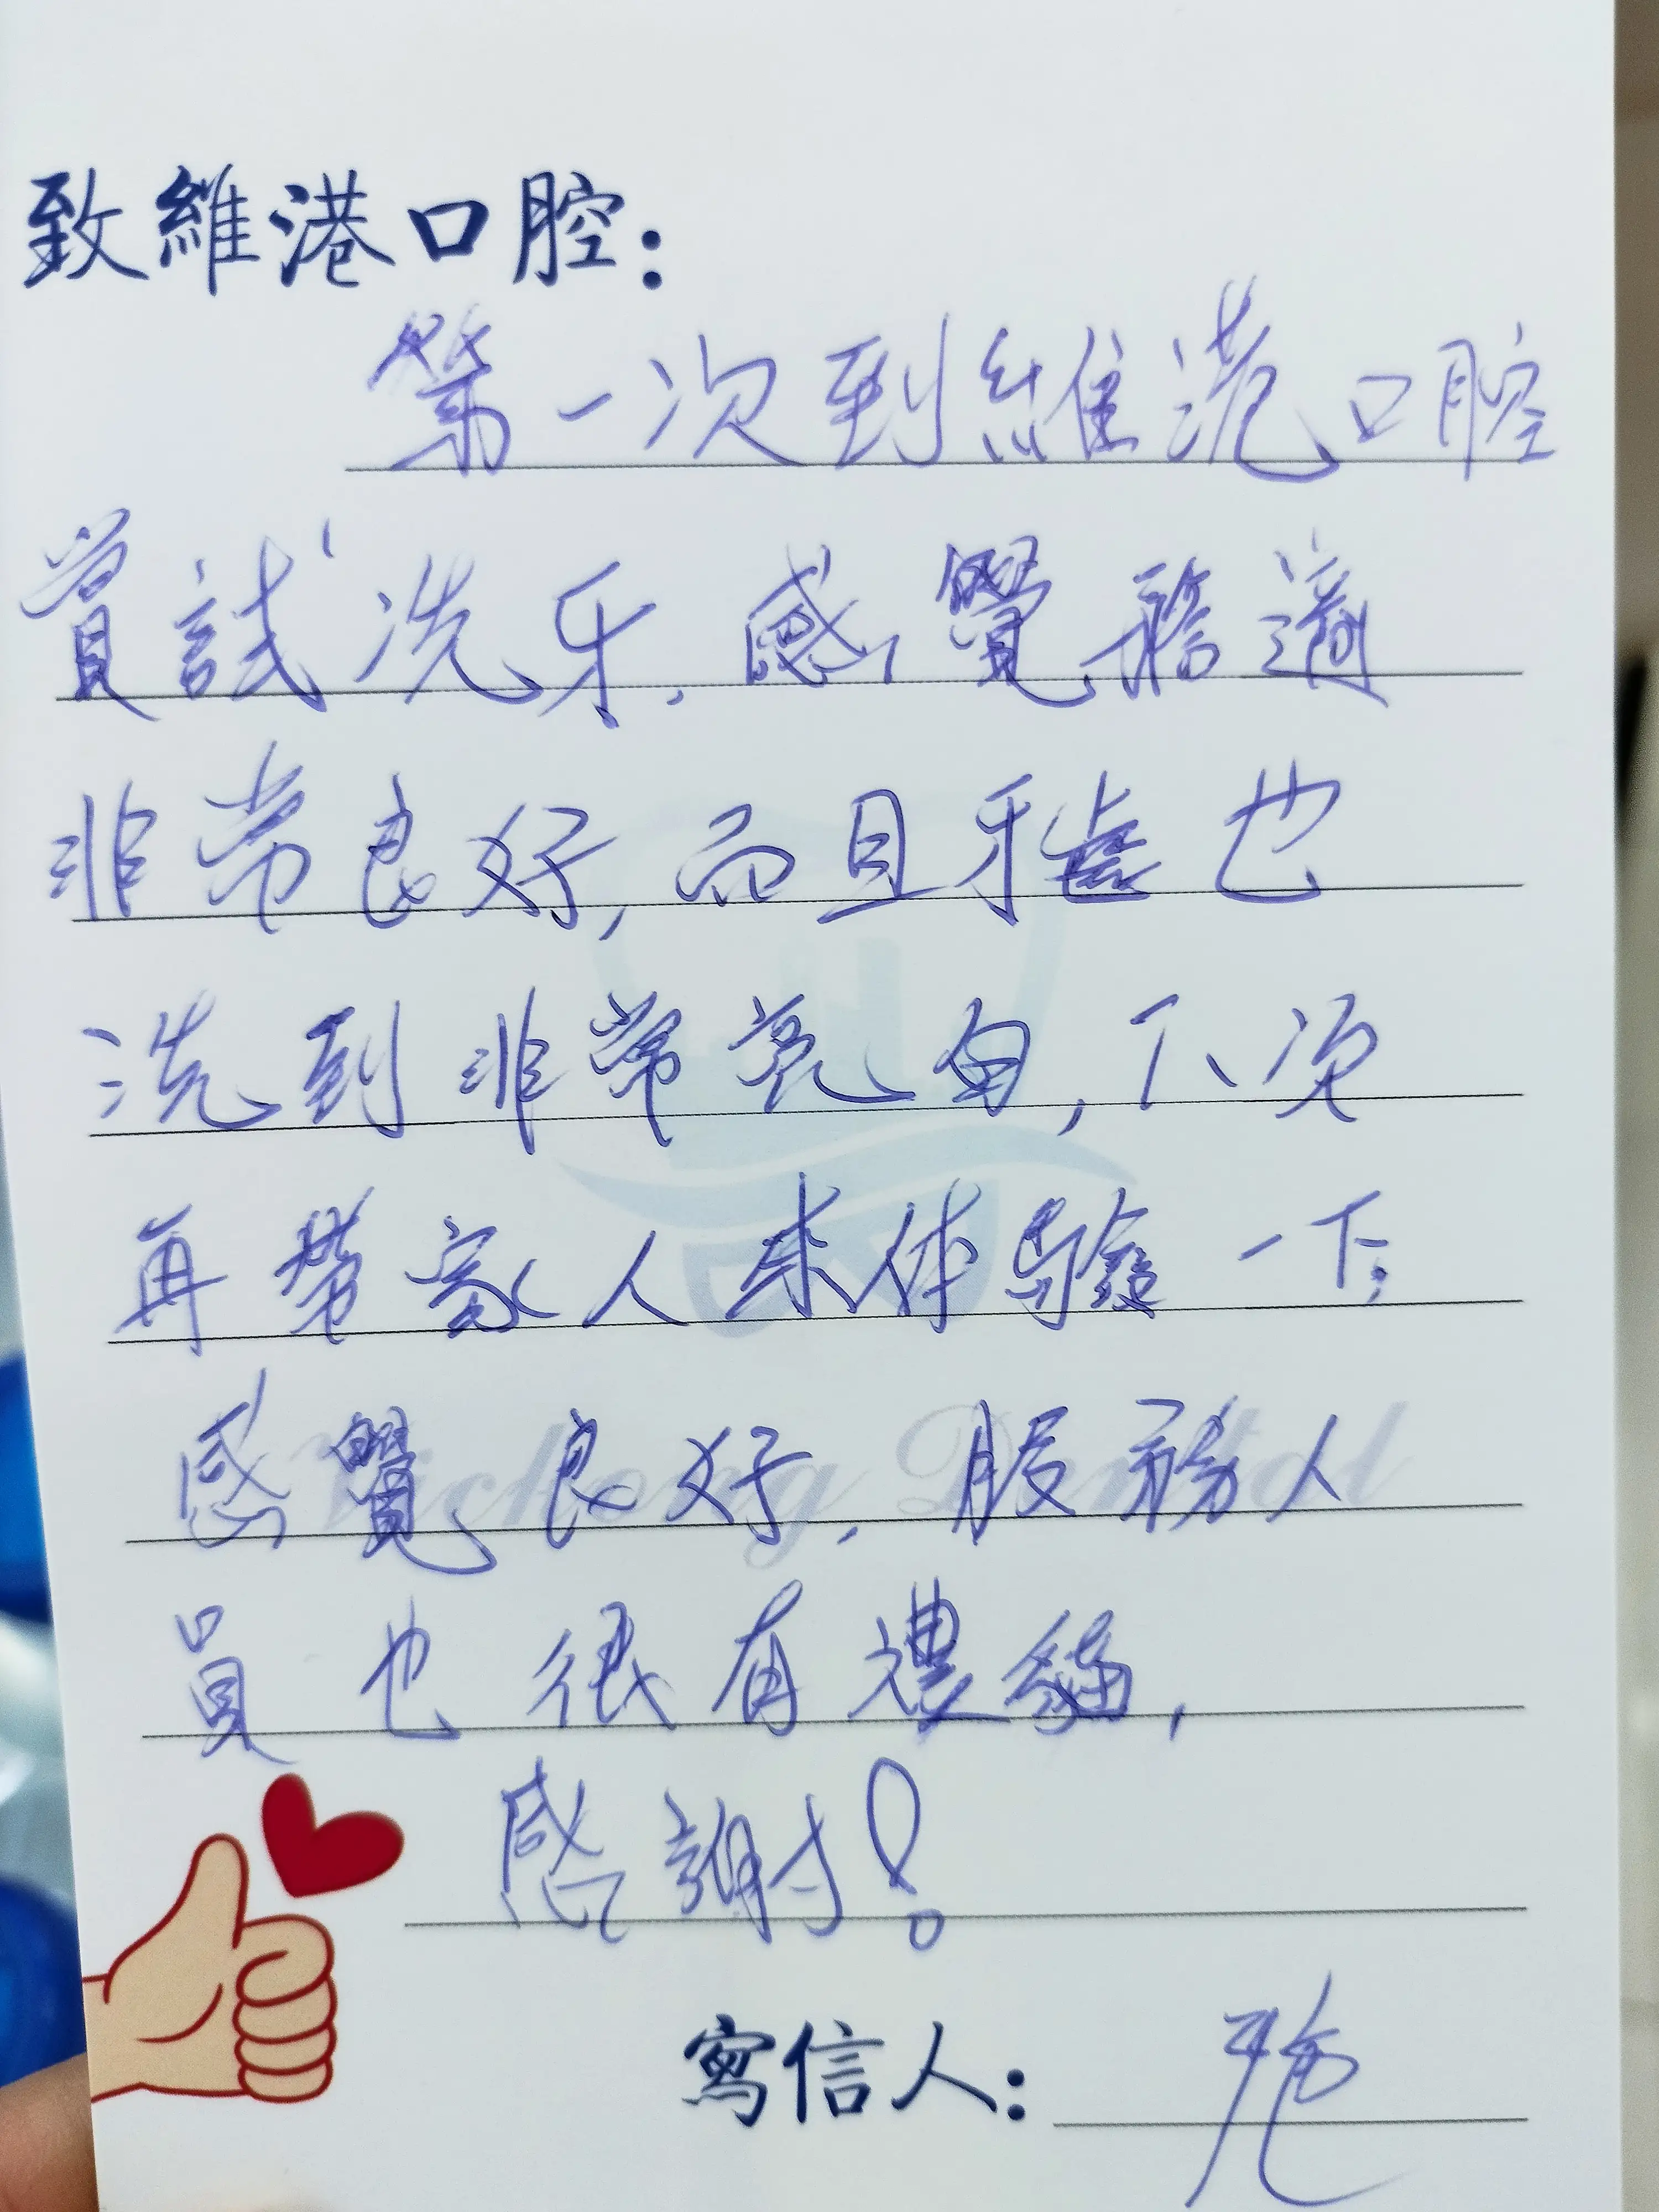 致維港口腔：
第一次到維港口腔
嘗試洗牙，感覺舒適
非常良好，而且牙齒也
洗到非常亮白，下次
再帶家人來体驗一下；
感覺良好，服務人
員也很有禮貌，
感謝！
Vickong Dental
寫信人：